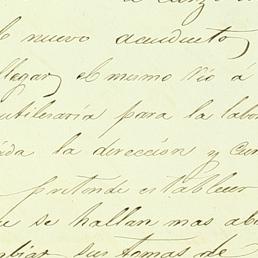 nuevo acueducto,
llegar, el mismo Rio á
utilizaría para la labor
la dirección y con
pretende establecer
se hallan mas ab
sus tomas de